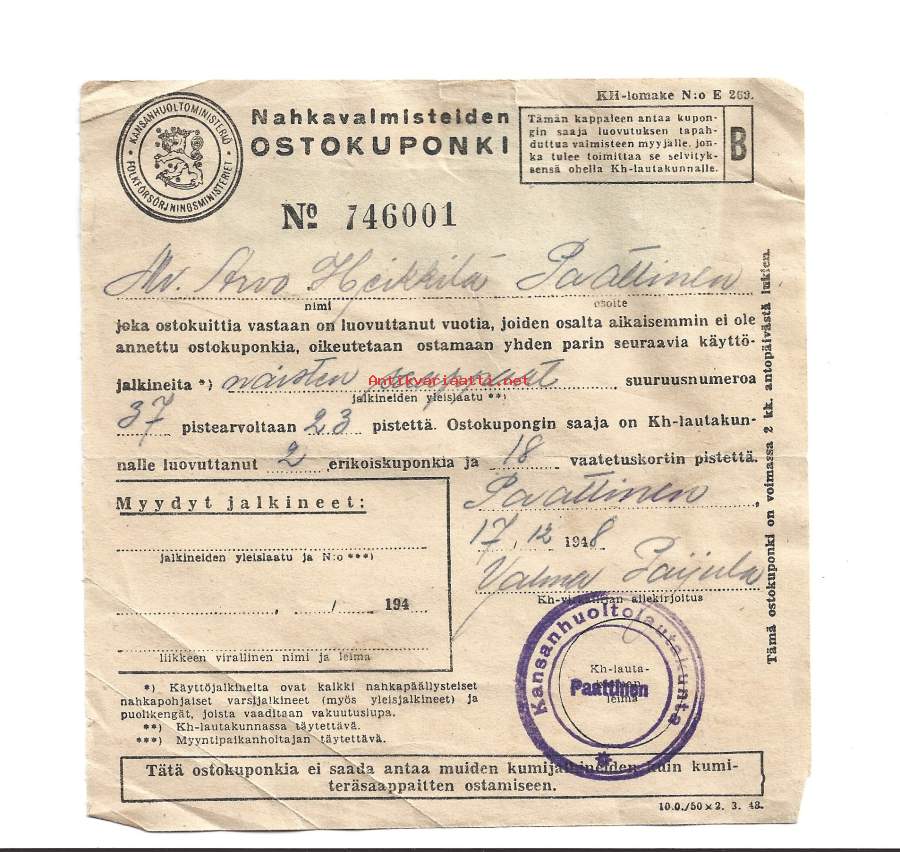 KH-lomake N:o E 269.
KANSANHUOLTOMINISTERIÖ
FOLKFÖRSÖRJNINGSMINISTERIET
Nahkavalmisteiden
OSTOKUPONKI
Tämän kappaleen antaa kupon-
gin saaja luovutuksen tapah-
duttua valmisteen myyjälle, jon-
ka tulee toimittaa se selvityk-
sensä ohella Kh-lautakunnalle.
B
No 746001
Mv. Arvo Heikkilä Paattinen
nimi osoite
joka ostokuittia vastaan on luovuttanut vuotia, joiden osalta aikaisemmin ei ole
annettu ostokuponkia, oikeutetaan ostamaan yhden parin seuraavia käyttö-
jalkineita *) naisten saappaat suuruusnumeroa
Antikvariaatti.net
jalkineiden yleislaatu **)
37 pistearvoltaan 23 pistettä. Ostokupongin saaja on Kh-lautakun-
nalle luovuttanut 2 erikoiskuponkia ja 18 vaatetuskortin pistettä.
Paattinen
17/12 1948
Kh-virkailijan allekirjoitus
Myydyt jalkineet:
jalkineiden yleislaatu ja N:o ***)
, / 194
liikkeen virallinen nimi ja leima
Kansanhuoltolautakunta
Paattinen
Kh-lauta-
kunnan
leima
*) Käyttöjalkineita ovat kaikki nahkapäällysteiset
nahkapohjaiset varsijalkineet (myös yleisjalkineet) ja
puolikengät, joista vaaditaan vakuutuslupa.
**) Kh-lautakunnassa täytettävä.
***) Myyntipaikanhoitajan täytettävä.
Tätä ostokuponkia ei saada antaa muiden kumijalkineiden kuin kumi-
teräsaappaitten ostamiseen.
10.0./50 x 2. 3. 48.
Tämä ostokuponki on voimassa 2 kk. antopäivästä lukien.